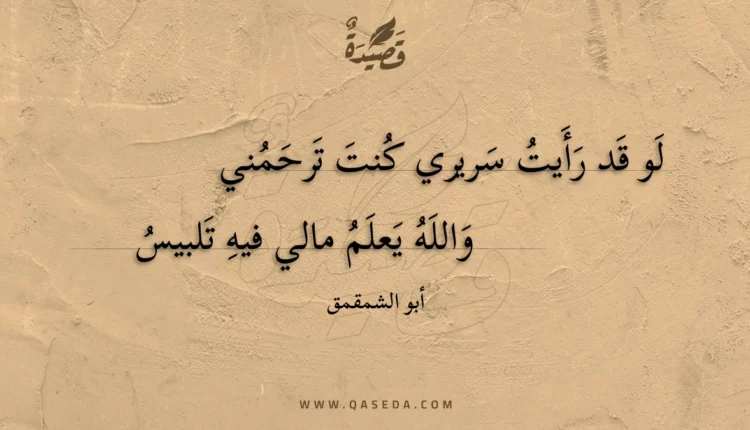 قَصِيْدَةٌ
لَو قَد رَأَيتُ سَريري كُنتَ تَرحَمُني
وَاللَهُ يَعلَمُ مالي فيهِ تَلبيسُ
أبو الشمقمق
WWW.QASEDA.COM